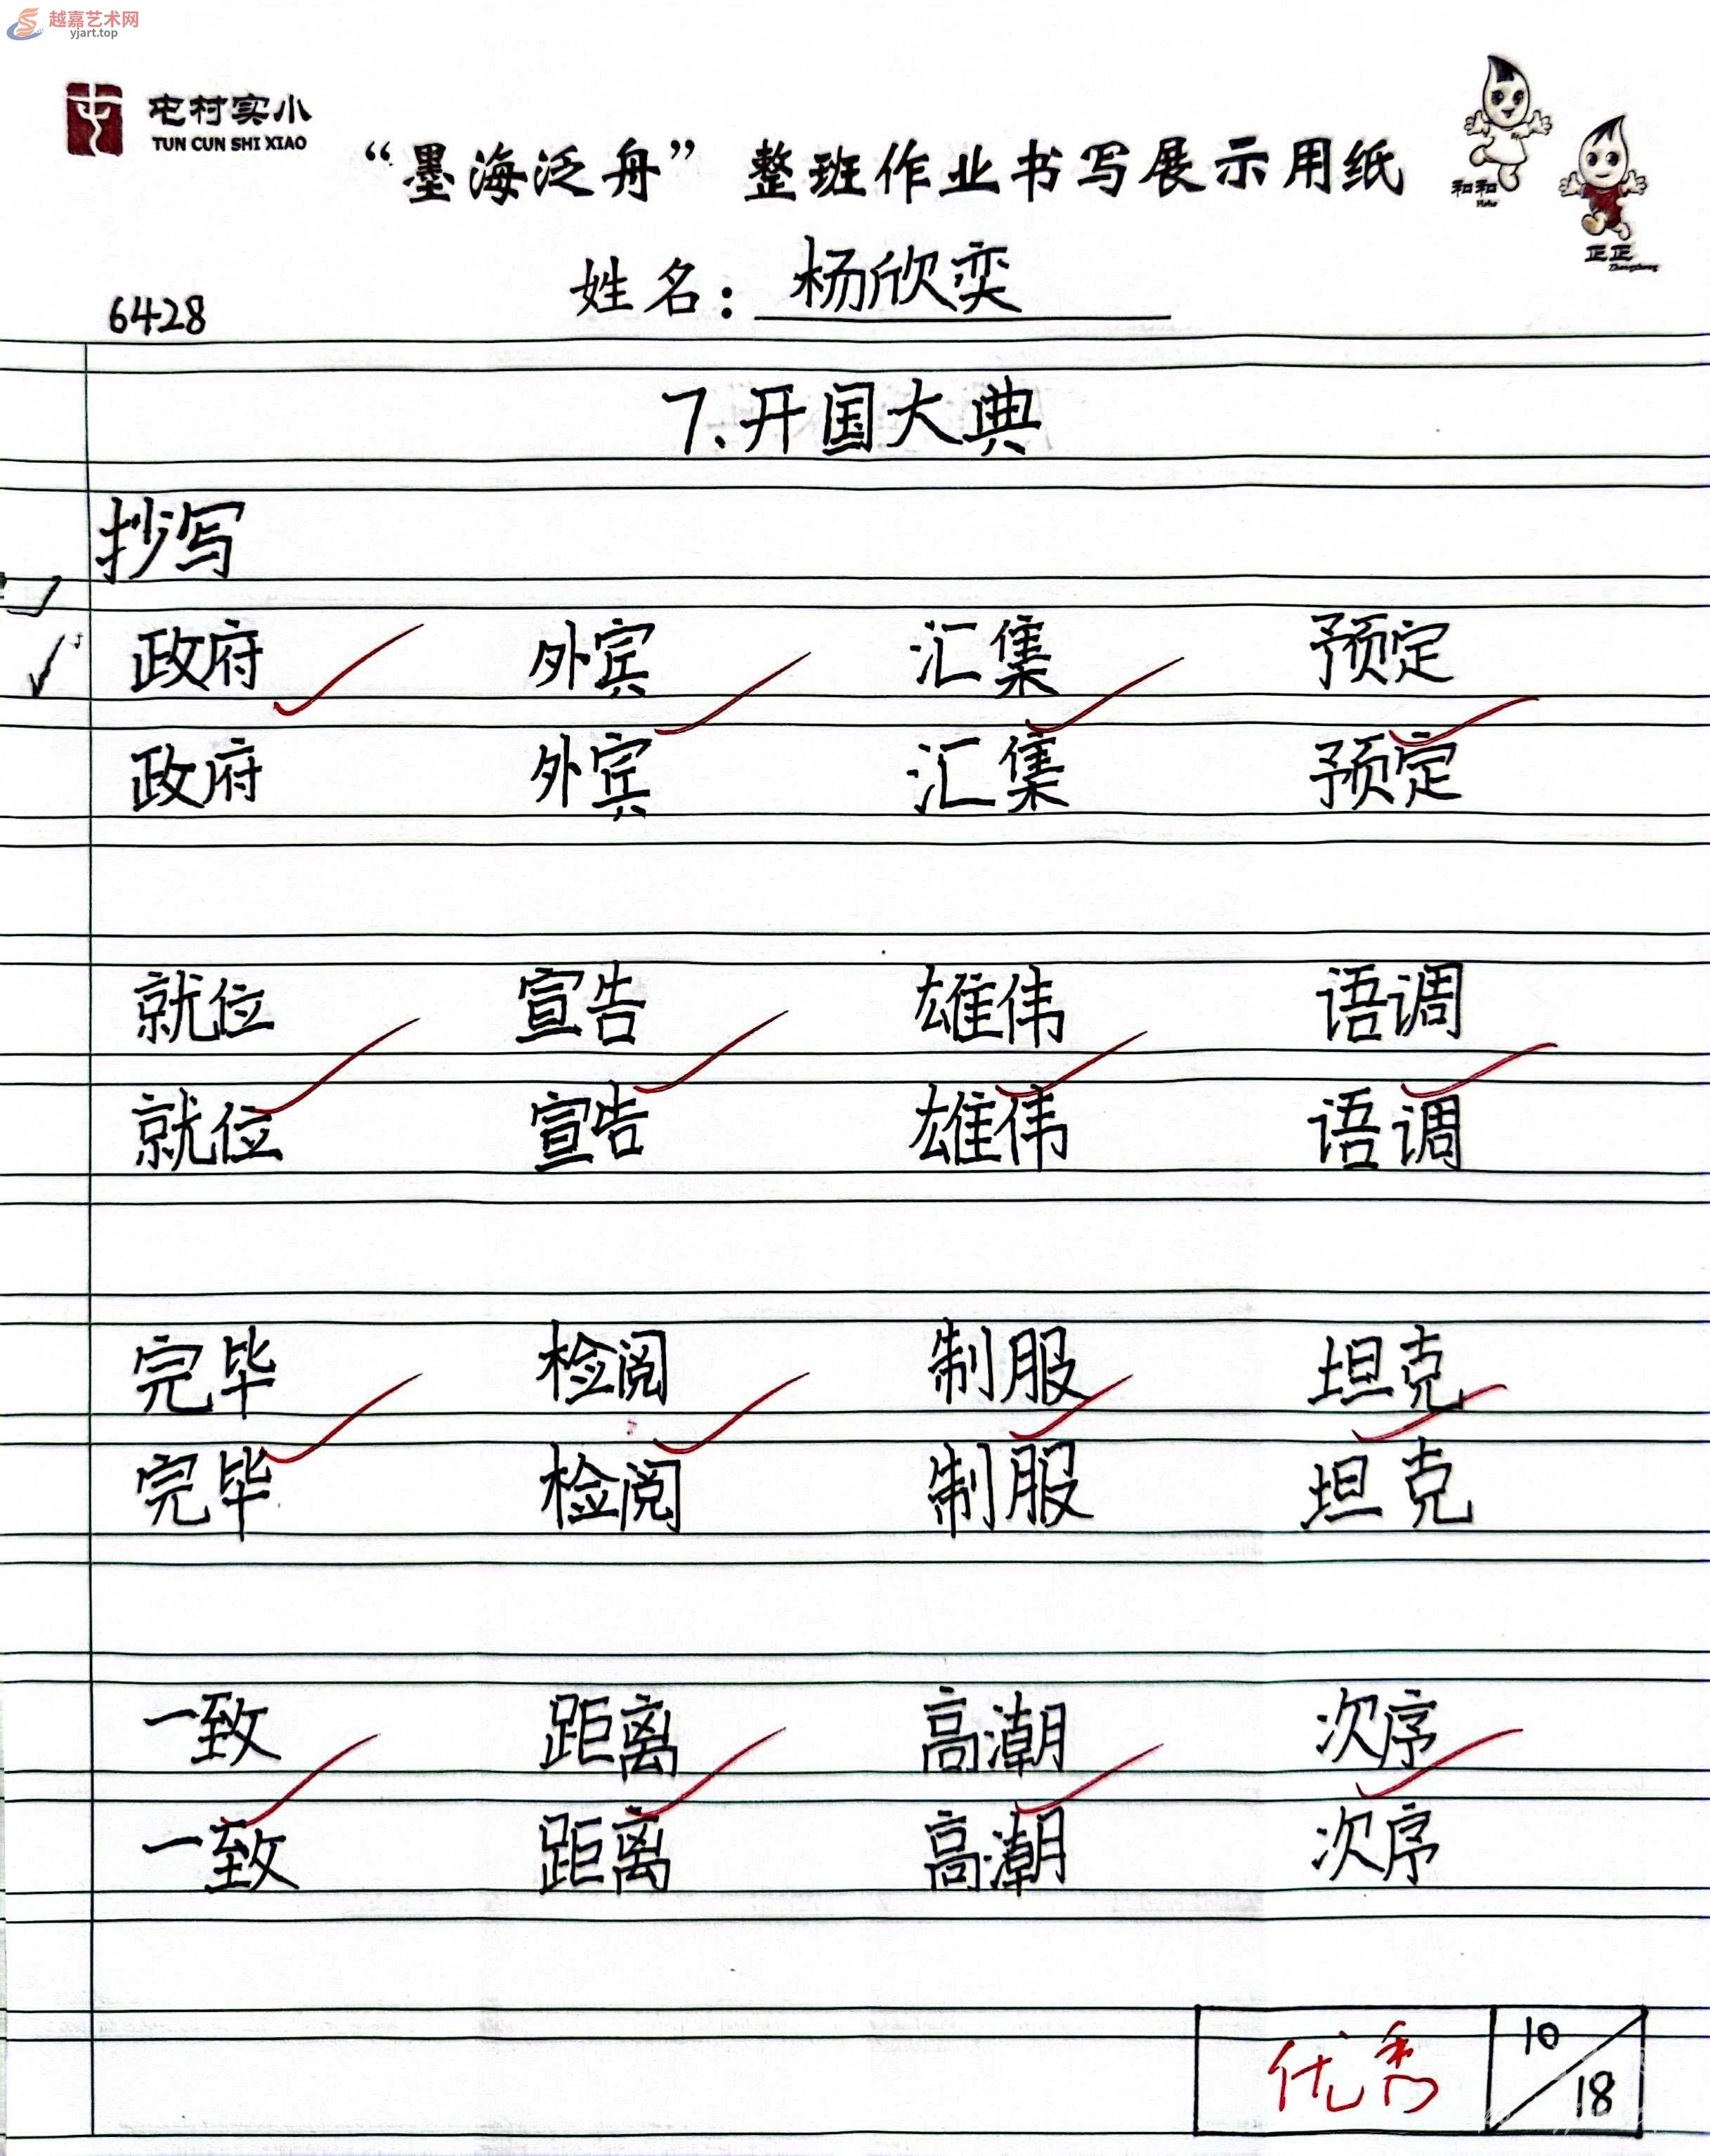 越嘉艺术网
yjart.top
屯村实小
TUN CUN SHI XIAO
“墨海泛舟” 整班作业书写展示用纸
和和
Hehe
正正
Zhengzheng
姓名：杨欣奕
6428
7、开国大典
抄写
政府 外宾 汇集 预定
政府 外宾 汇集 预定
就位 宣告 雄伟 语调
就位 宣告 雄伟 语调
完毕 检阅 制服 坦克
完毕 检阅 制服 坦克
一致 距离 高潮 次序
一致 距离 高潮 次序
优秀 10/18